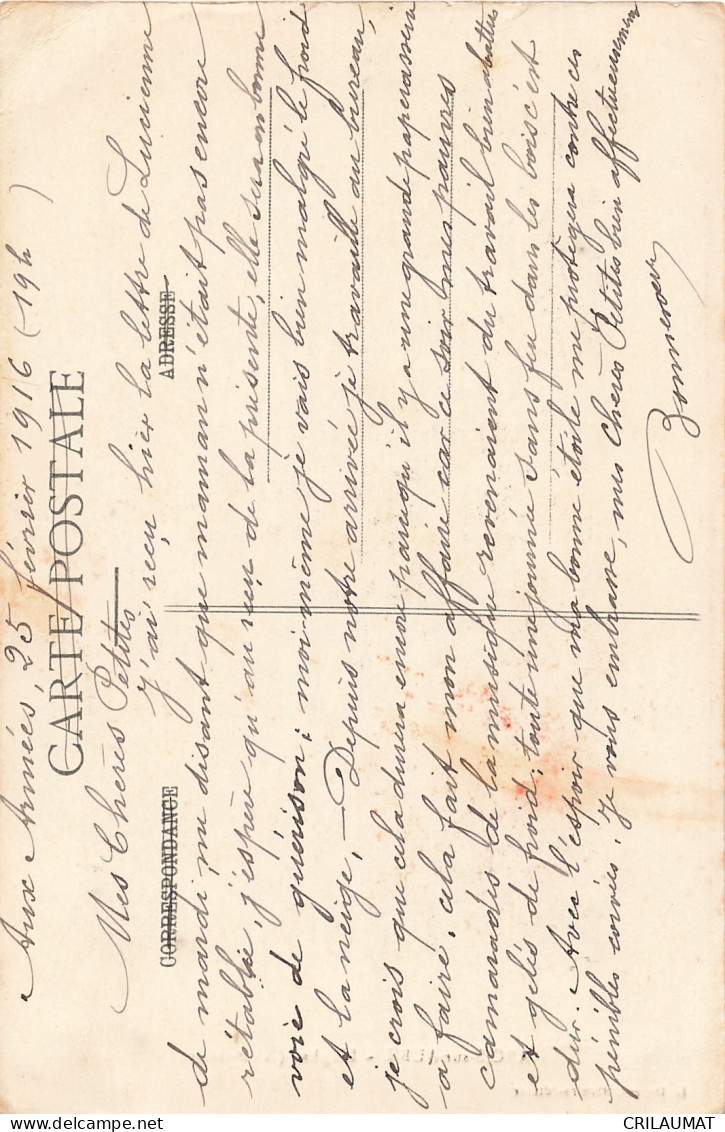 Aux Armées, 25 février 1916 (19h)
CARTE POSTALE
Mes Chères Petites
CORRESPONDANCE
ADRESSE
J'ai reçu hier la lettre de Lucienne
de mardi, me disant que maman n'était pas encore
rétablie, j'espère qu'au reçu de la présente, elle sera en bonne
voie de guérison; moi-même je vais bien malgré le froid
et la neige. — Depuis notre arrivée je travaille au bureau,
je crois que cela durera encore parce qu'il y a une grande paperasserie
à faire, cela fait mon affaire car ce soir mes pauvres
camarades de la musique revenaient du travail bien abattus
et gelés de froid; toute une journée sans feu dans les bois c'est
dur. Avec l'espoir que ma bonne étoile me protègera contre ces
pénibles corvées, je vous embrasse, mes Chères Petites bien affectueusement
CRILAUMAT